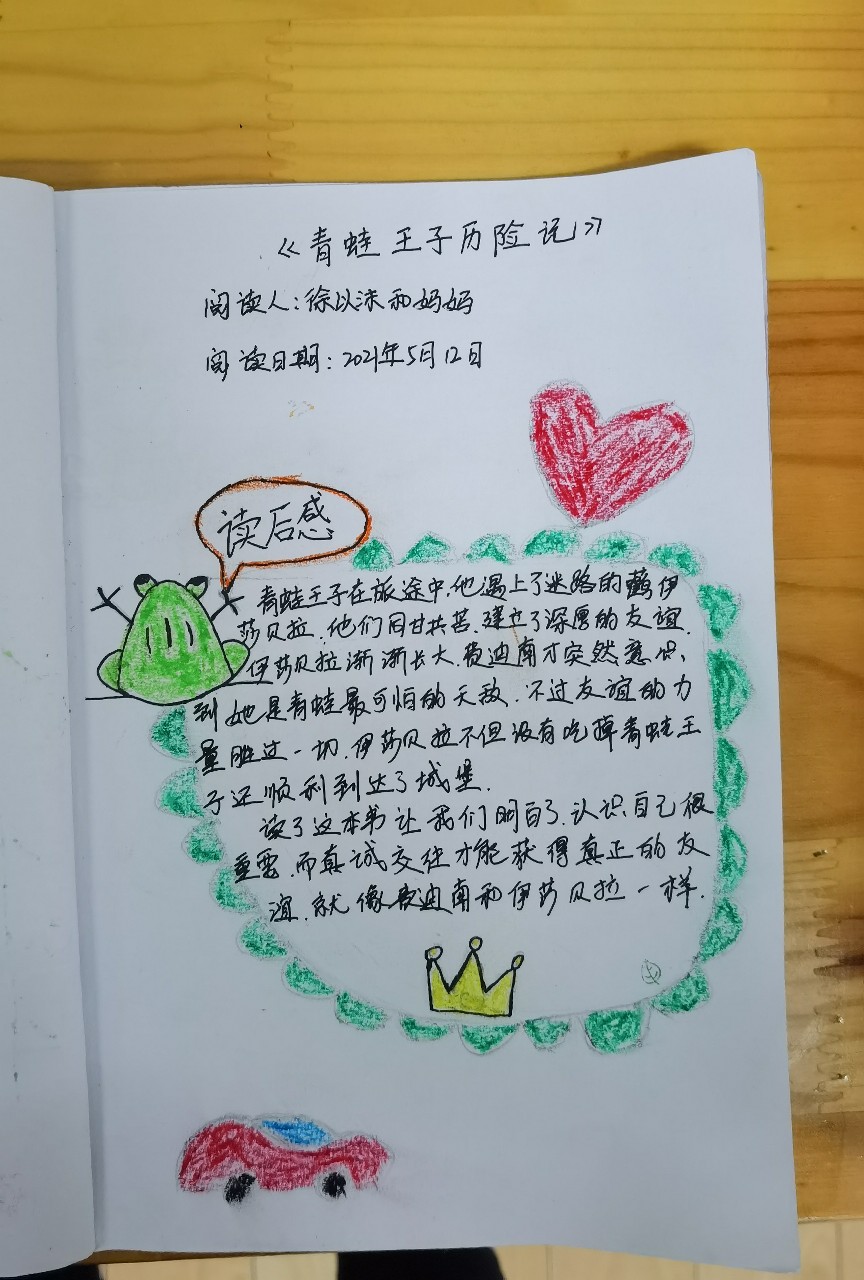 《青蛙王子历险记》
阅读人:徐以沫和妈妈
阅读日期:2021年5月12日
读后感
青蛙王子在旅途中,他遇上了迷路的鹳伊
莎贝拉,他们同甘共苦,建立了深厚的友谊.
伊莎贝拉渐渐长大,费迪南才突然意识
到她是青蛙最可怕的天敌.不过友谊的力
量胜过一切,伊莎贝拉不但没有吃掉青蛙王
子还顺利到达了城堡.
读了这本书让我们明白了,认识自己很
重要,而真诚交往才能获得真正的友
谊,就像费迪南和伊莎贝拉一样.